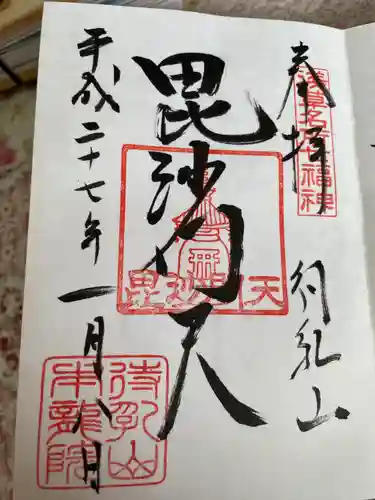 奉拝
浅草名所七福神
待乳山
毘沙門天
毘沙門天
平成二十七年一月八日
待乳山
本龍院